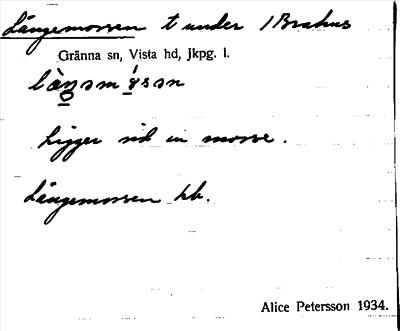 Långemossen t under 1 Brahus
Gränna sn, Vista hd, Jkpg. l.
Ligger vid en mosse.
Långemossen kb.
Alice Petersson 1934.